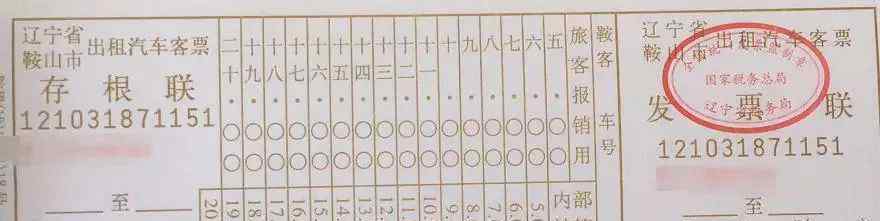 辽宁省
鞍山市
出租汽车客票
存根联
121031871151
至
二十 十九 十八 十七 十六 十五 十四 十三 十二 十一 十 九 八 七 六 五
. . . . . . . . . . . . . . . .
○ ○ ○ ○ ○ ○ ○ ○ ○ ○ ○ ○ ○ ○ ○ ○
○ ○ ○ ○ ○ ○ ○ ○ ○ ○ ○ ○ ○ ○ ○ ○
20 19. 18. 17. 16. 15. 14. 13. 12. 11. 10. 9. 8. 7. 6. 5.
旅客报销用
内部
鞍客
车号
辽宁省
鞍山市
出租汽车客票
国家税务总局
发票联
121031871151
至